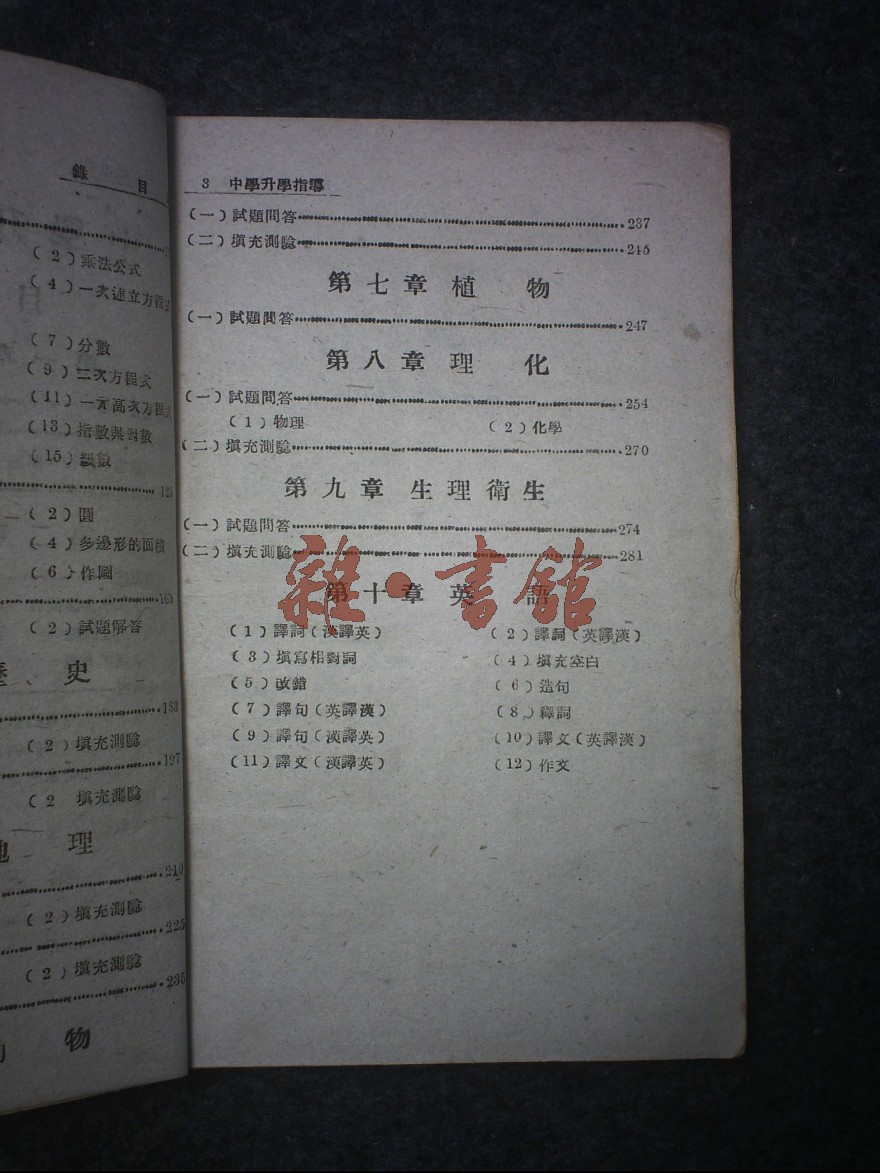 錄 目
(2)乘法公式
(4)一次連立方程式
(7)分數
(9)二次方程式
(11)一元高次方程式
(13)指數與對數
(15)級數
125
(2)圓
(4)多邊形的面積
(6)作圖
(2)試題解答
史
183
(2)填充測驗
197
(2 填充測驗
地 理
210
(2)填充測驗
225
(2)填充測驗
235
物
3 中學升學指導
(一)試題問答……237
(二)填充測驗……245
第七章 植 物
(一)試題問答……247
第八章 理 化
(一)試題問答……254
(1)物理 (2)化學
(二)填充測驗……270
第九章 生理衛生
(一)試題問答……274
(二)填充測驗……281
第十章 英 語
(1)譯詞(漢譯英) (2)譯詞(英譯漢)
(3)填寫相對詞 (4)填充空白
(5)改錯 (6)造句
(7)譯句(英譯漢) (8)釋詞
(9)譯句(漢譯英) (10)譯文(英譯漢)
(11)譯文(漢譯英) (12)作文
雜·書館